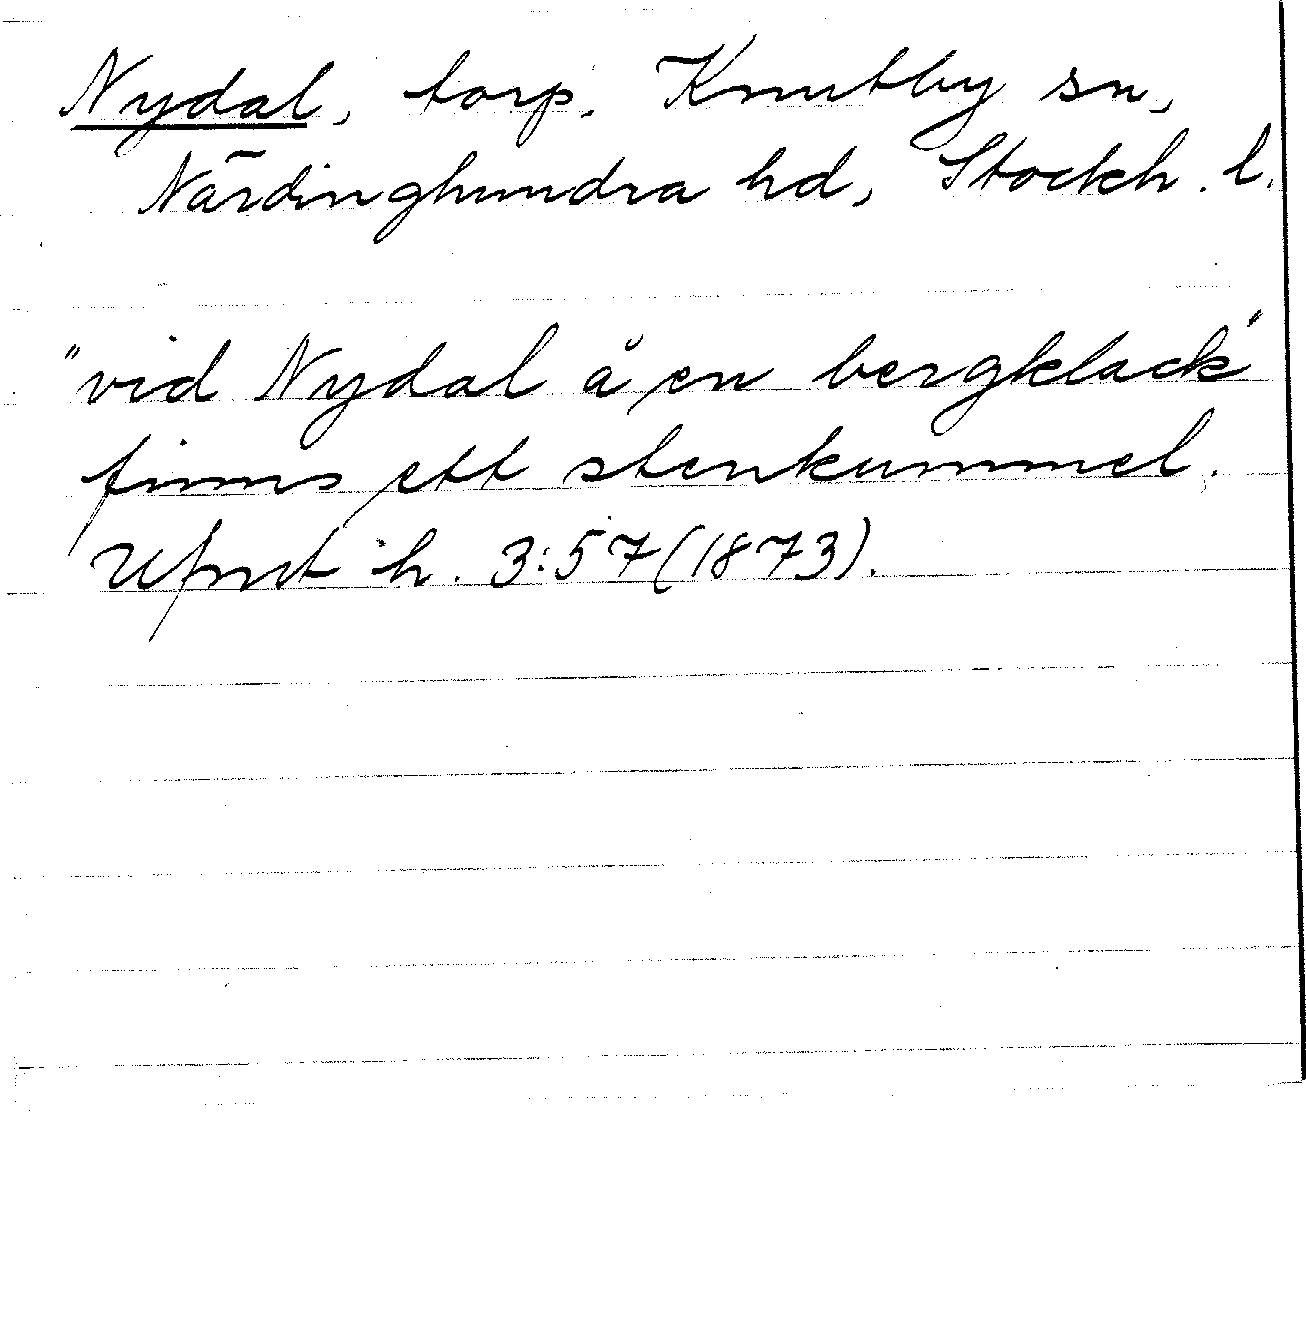 Nydal, torp, Knutby sn,
Närdinghundra hd, Stockh. l.
"vid Nydal å en bergklack"
finns ett stenkummel.
Ufmt h. 3:57 (1873).